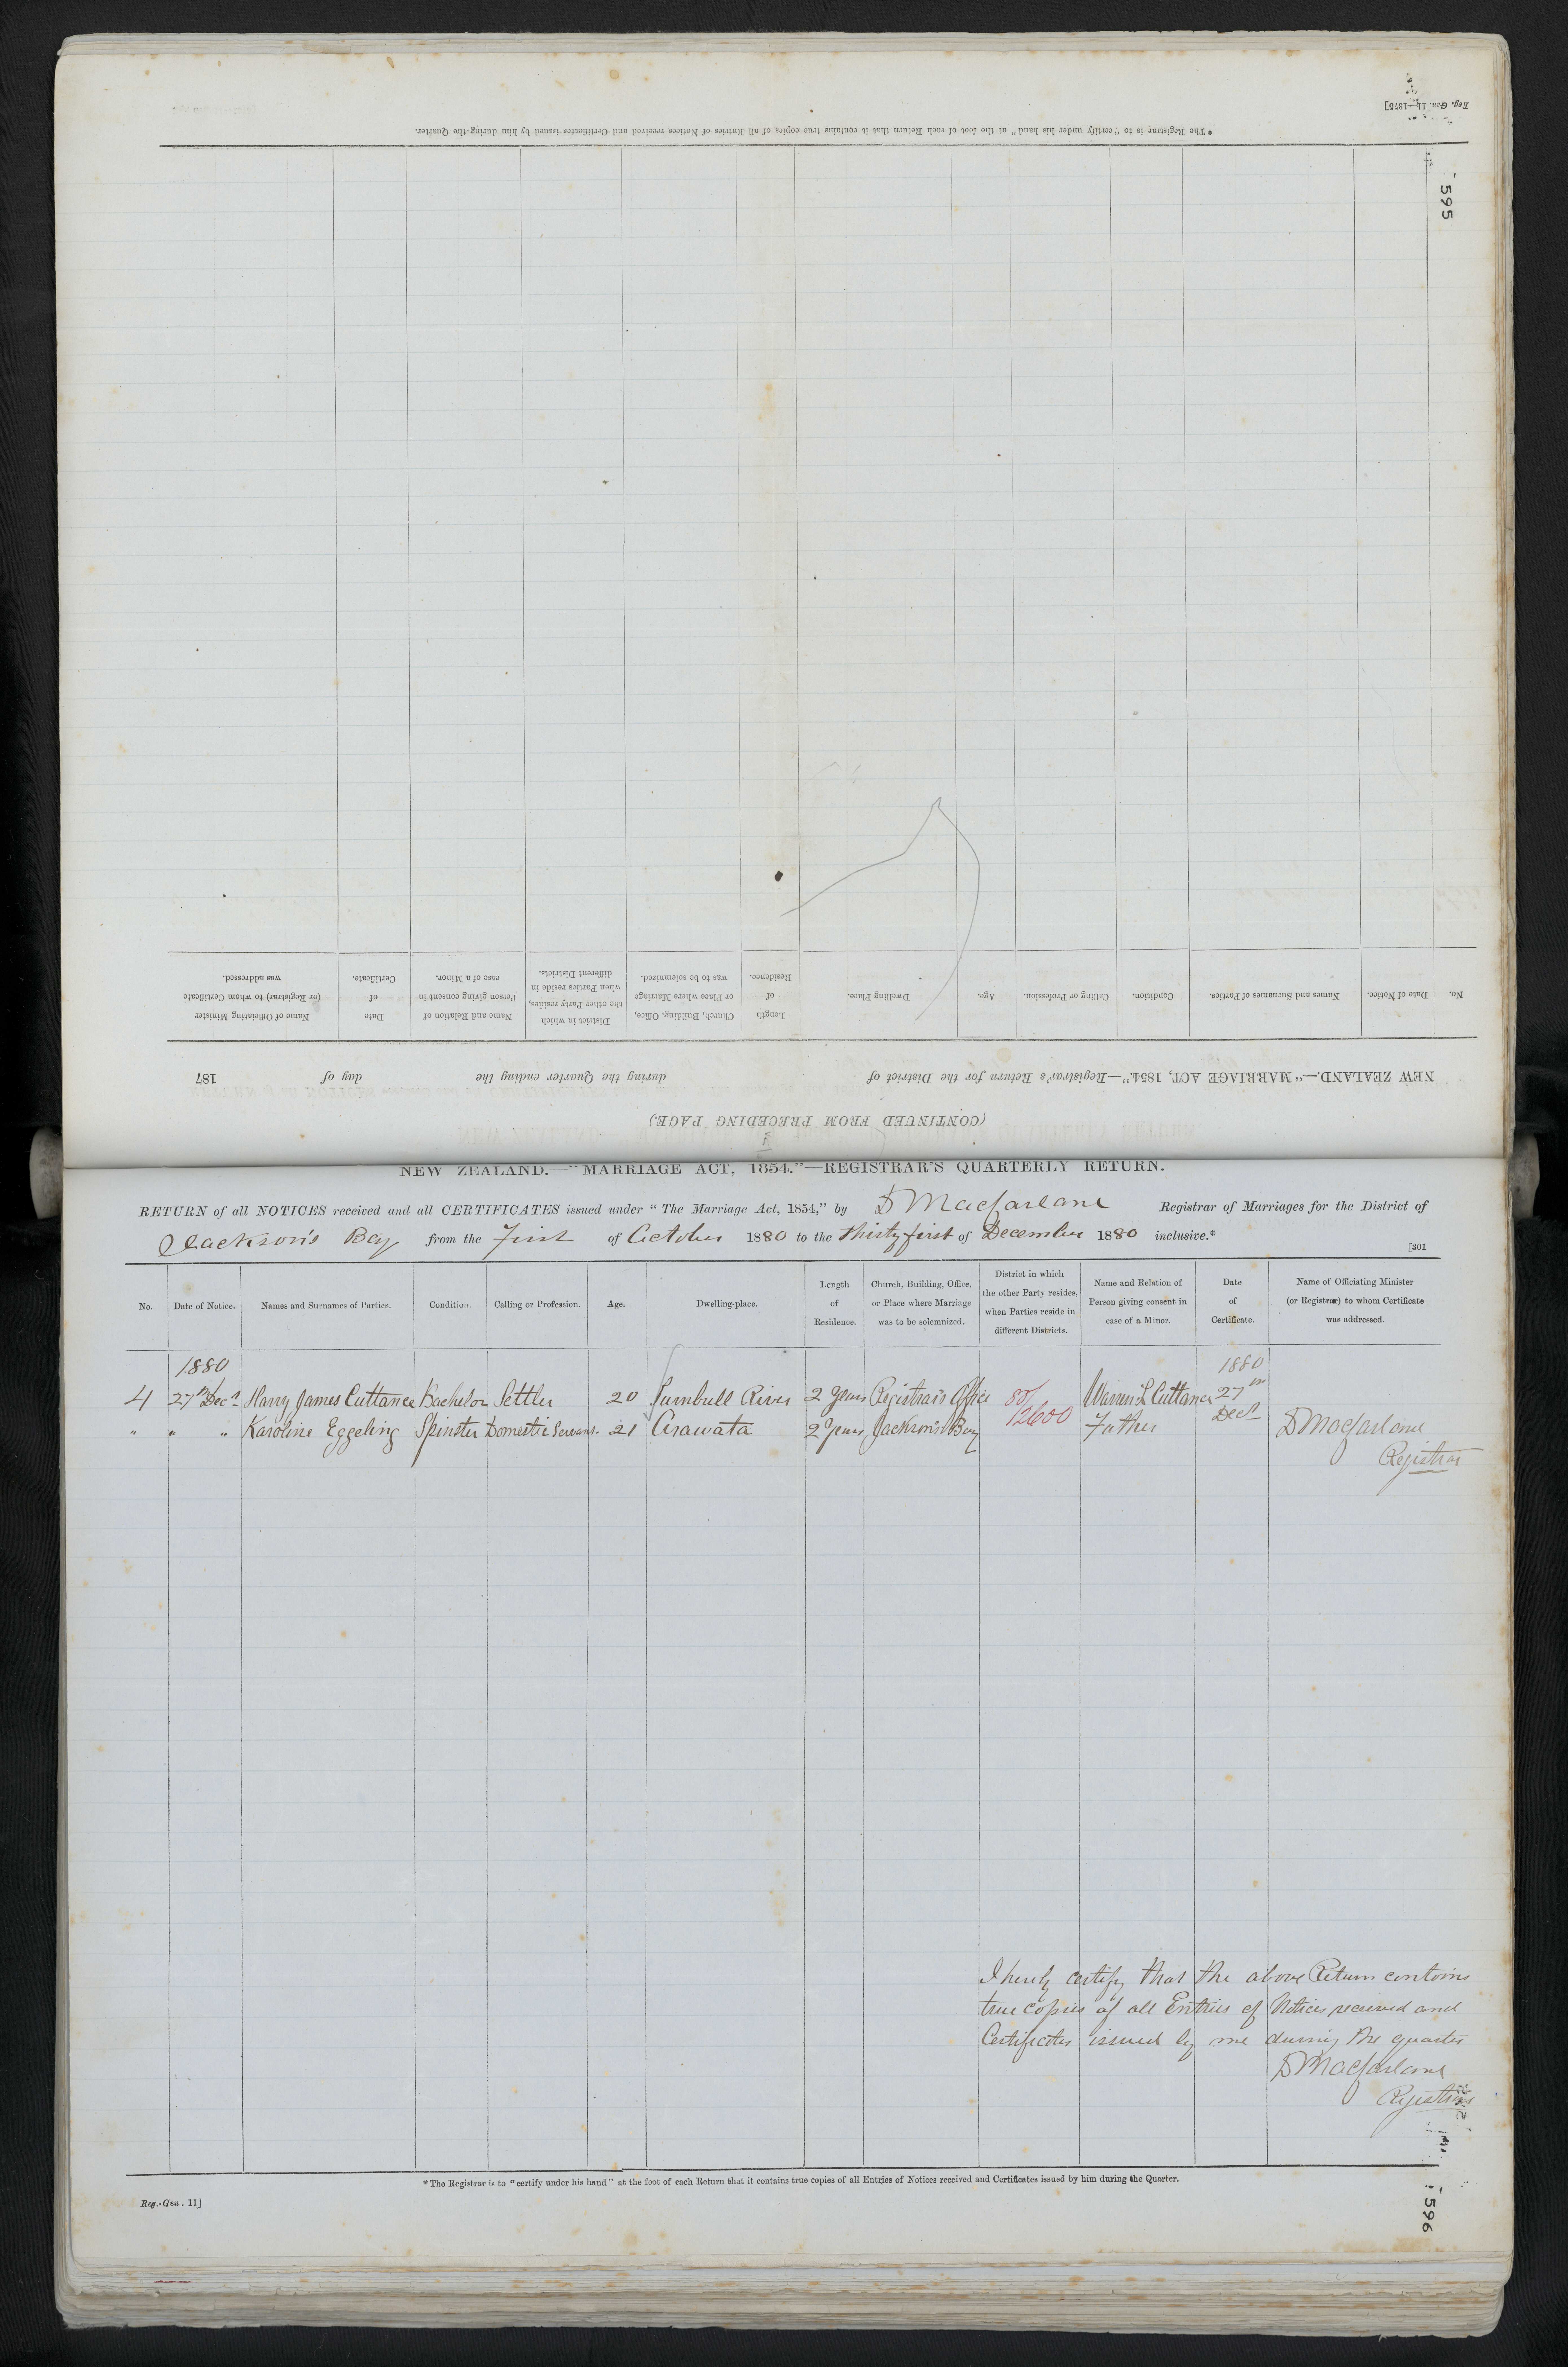 Reg. Gen. 11—1875]
* The Registrar is to "certify under his hand" at the foot of each Return that it contains true copies of all Entries of Notices received and Certificates issued by him during the Quarter.
595
No.
Date of Notice.
Names and Surnames of Parties.
Condition.
Calling or Profession.
Age.
Dwelling Place.
Length
of
Residence.
Church, Building, Office,
or Place where Marriage
was to be solemnized.
District in which
the other Party resides,
when Parties reside in
different Districts.
Name and Relation of
Person giving consent in
case of a Minor.
Date
of
Certificate.
Name of Officiating Minister
(or Registrar) to whom Certificate
was addressed.
NEW ZEALAND.—"MARRIAGE ACT, 1854."—Registrar's Return for the District of during the Quarter ending the day of 187
(CONTINUED FROM PRECEDING PAGE.)
NEW ZEALAND.—"MARRIAGE ACT, 1854."—REGISTRAR'S QUARTERLY RETURN.
RETURN of all NOTICES received and all CERTIFICATES issued under "The Marriage Act, 1854," by D Macfarlane Registrar of Marriages for the District of
Jackson's Bay from the First of October 1880 to the thirty first of December 1880 inclusive.*
[301
No.
Date of Notice.
Names and Surnames of Parties.
Condition.
Calling or Profession.
Age.
Dwelling-place.
Length
of
Residence.
Church, Building, Office,
or Place where Marriage
was to be solemnized.
District in which
the other Party resides,
when Parties reside in
different Districts.
Name and Relation of
Person giving consent in
case of a Minor.
Date
of
Certificate.
Name of Officiating Minister
(or Registrar) to whom Certificate
was addressed.
1880 1880
4 27th Decr Harry James Cuttance Bachelor Settler 20 Turnbull River 2 years Registrar's Office 80/ Warren L Cuttance 27th
" " " Karoline Eggeling Spinster Domestic Servant 21 Arawata 2 years Jackson's Bay 12600 Father Decr D Macfarlane
Registrar
I hereby certify that the above Return contains
true copies of all Entries of Notices received and
Certificates issued by me during the quarter
D Macfarlane
Registrar
* The Registrar is to "certify under his hand" at the foot of each Return that it contains true copies of all Entries of Notices received and Certificates issued by him during the Quarter.
Reg.-Gen. 11]
596